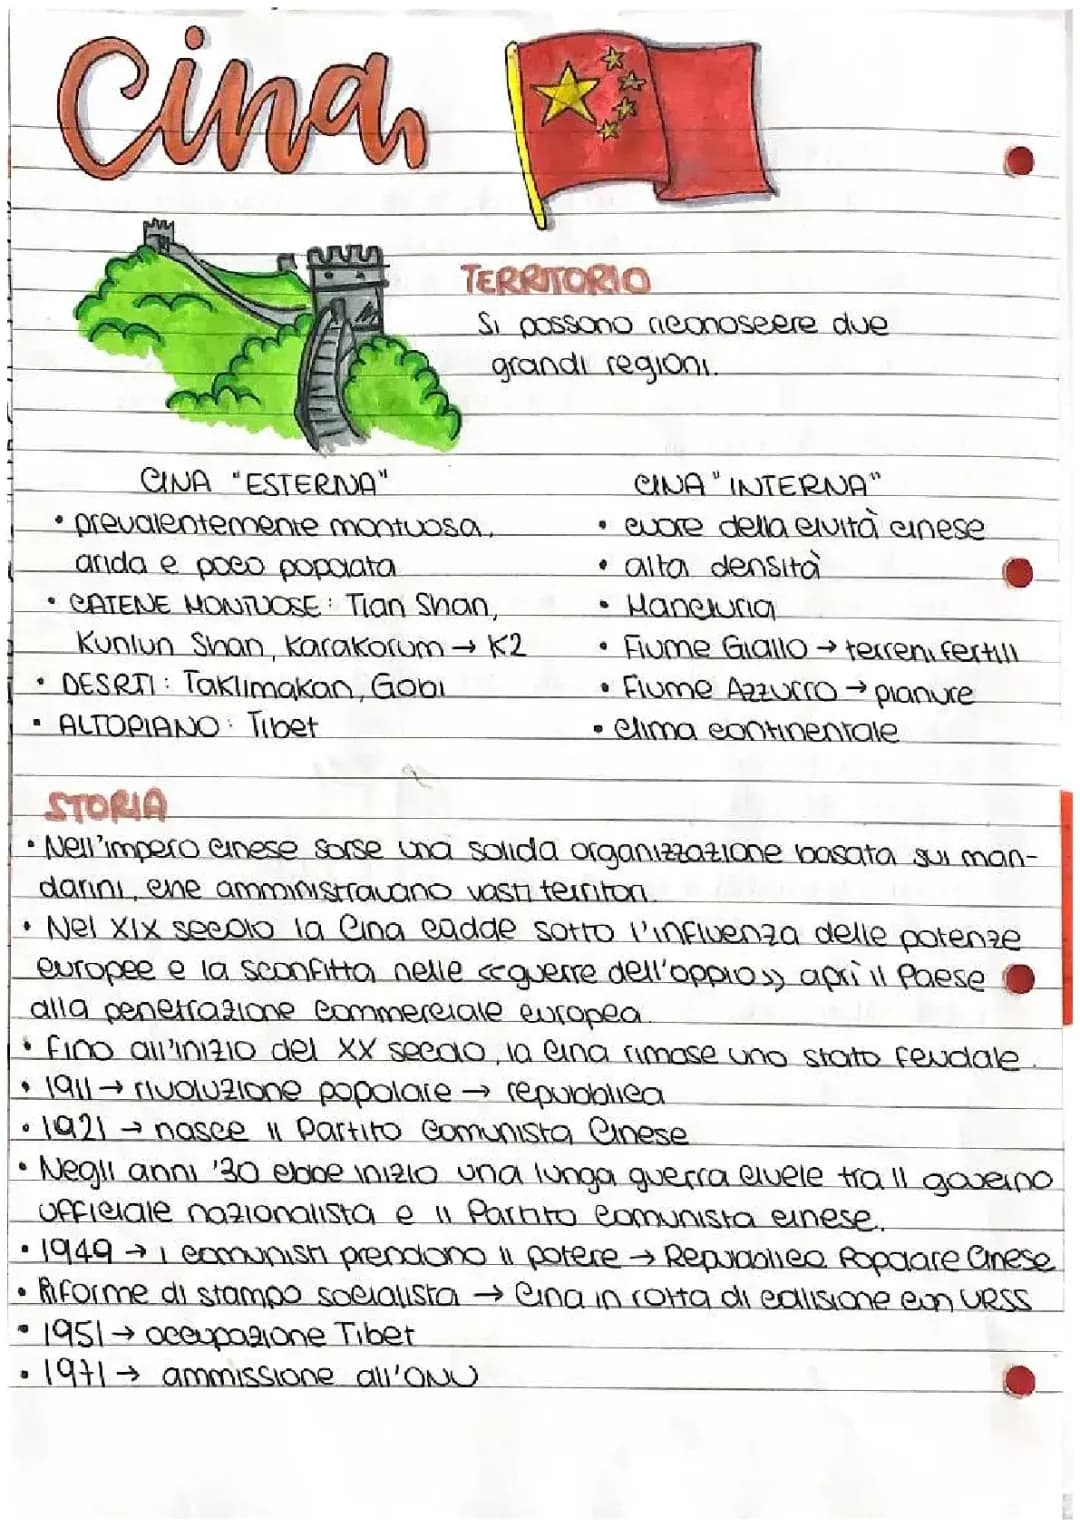 Cina
TERRITORIO
Si possono riconoscere due
grandi regioni.
CINA "ESTERNA"
• prevalentemente montuosa,
arida e poco popolata
• CATENE MONTUOSE: Tian Shan,
Kunlun Shan, Karakorum → K2
• DESRTI: Taklimakan, Gobi
• ALTOPIANO: Tibet
CINA "INTERNA"
• cuore della civiltà cinese
• alta densità
• Manciuria
• Fiume Giallo → terreni fertili
• Fiume Azzurro → pianure
• clima continentale
STORIA
• Nell'impero cinese sorse una solida organizzazione basata sui man-
darini, che amministravano vasti territori.
• Nel XIX secolo la Cina cadde sotto l'influenza delle potenze
europee e la sconfitta nelle «guerre dell'oppio» aprì il Paese
alla penetrazione commerciale europea.
• Fino all'inizio del XX secolo, la Cina rimase uno stato feudale.
• 1911 → rivoluzione popolare → repubblica
• 1921 → nasce il Partito Comunista Cinese
• Negli anni '30 ebbe inizio una lunga guerra civele tra il governo
ufficiale nazionalista e il Partito comunista cinese.
• 1949 → i comunisti prendono il potere → Repubblica Popolare Cinese
• Riforme di stampo socialista → Cina in rotta di collisione con URSS
• 1951 → occupazione Tibet
• 1971 → ammissione all'ONU